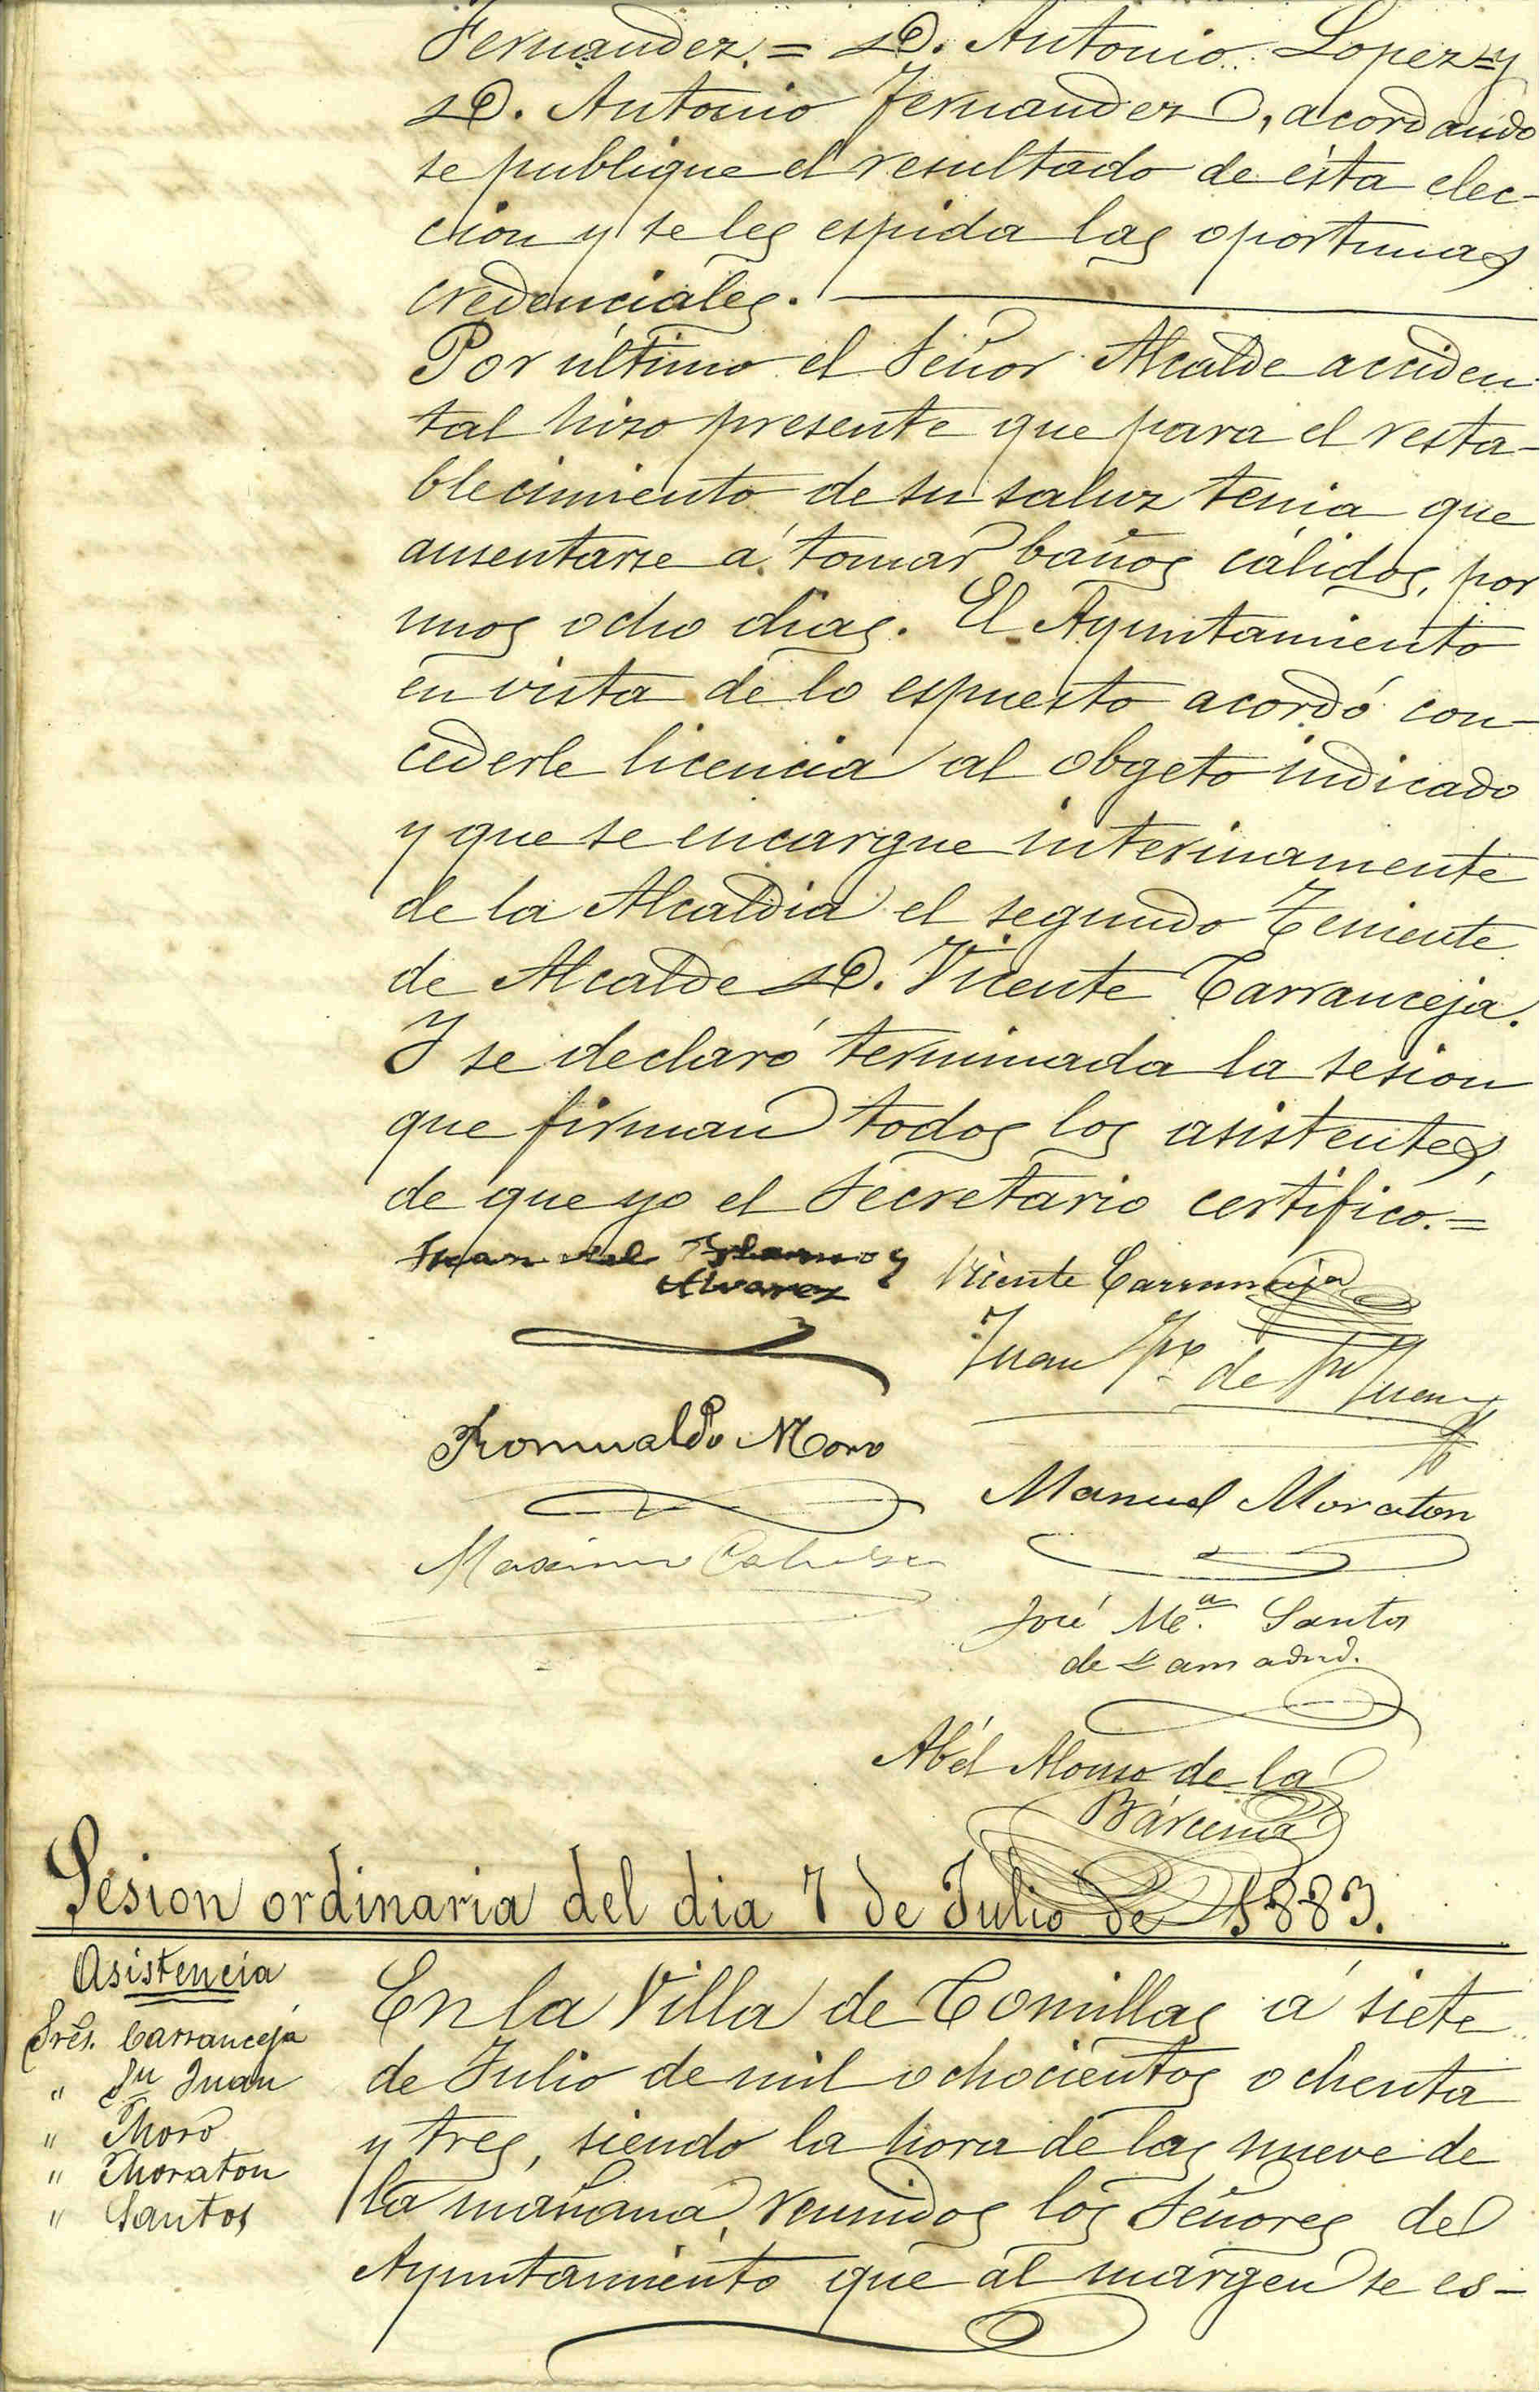 Fernandez.= D. Antonio Lopez=y
D. Antonio Fernandez, acordando
se publique el resultado de ésta elec-
cion y se les espida las oportunas
credenciales.
Por último el Señor Alcalde acciden-
tal hizo presente que para el resta-
blecimiento de su saluz tenia que
ausentarse á tomar baños cálidos, por
unos ocho dias. El Ayuntamiento
en vista de lo espuesto acordó con-
cederle licencia al obgeto indicado
y que se encargue interinamente
de la Alcaldia el segundo Teniente
de Alcalde D. Vicente Carranceja.
Y se declaró terminada la sesion
que firman todos los asistentes,
de que yo el Secretario certifico.=
Juan del y
Alvarez
Vicente Carranceja
Juan de Juan
Romualdo Moro
Manuel Moraton
Maximo
José Ma. Santos
de Lamadrid.
Abél Alonso de la
Bárcena
Sesion ordinaria del dia 7 de Julio de 1883.
Asistencia
Sres. Carranceja
" Sn Juan
" Moro
" Moraton
" Santos
En la Villa de Comillas á siete
de Julio de mil ochocientos ochenta
y tres, siendo la hora de las nueve de
la mañana, reunidos los Señores del
Ayuntamiento que al margen se es-